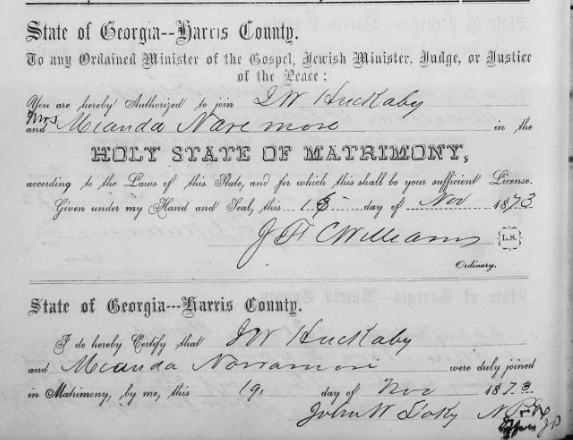 State of Georgia--Harris County.
To any Ordained Minister of the Gospel, Jewish Minister, Judge, or Justice
of the Peace:
You are hereby Authorized to join J W Huckaby
Mrs
and Meanda Naremore in the
HOLY STATE OF MATRIMONY,
according to the Laws of this State, and for which this shall be your sufficient License.
Given under my Hand and Seal, this 18 day of Nov 1873
J F C Williams L.S.
Ordinary.
State of Georgia---Harris County.
I do hereby Certify that J W Huckaby
and Meanda Narramore were duly joined
in Matrimony, by me, this 19 day of Nov 1873
John W